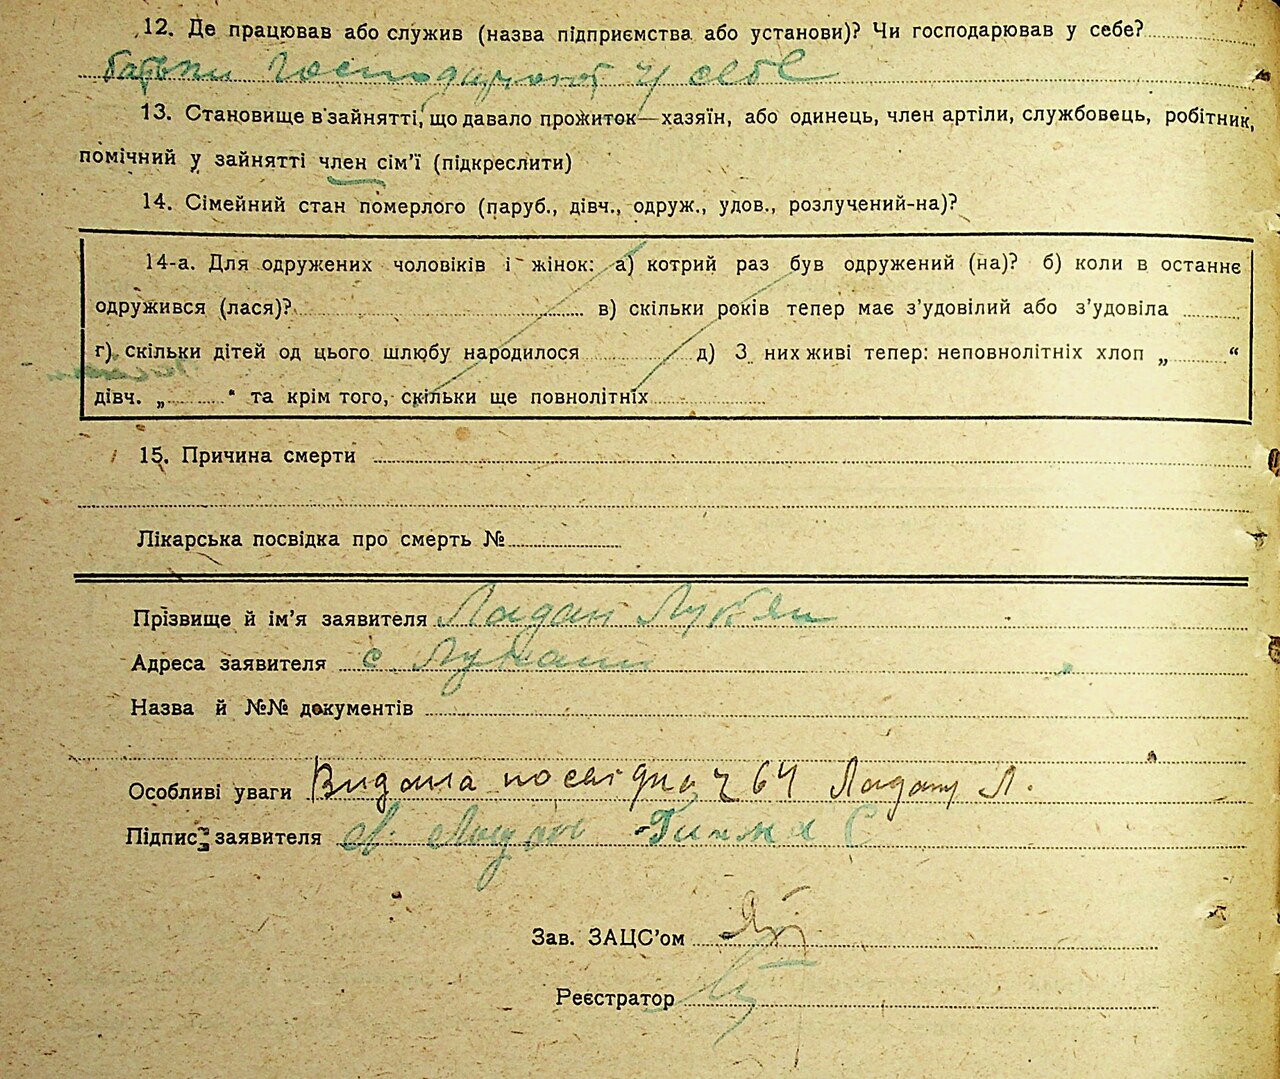 12. Де працював або служив (назва підприємства або установи)? Чи господарював у себе?
батьки господарюют у себе
13. Становище в зайнятті, що давало прожиток—хазяїн, або одинець, член артіли, службовець, робітник,
помічний у зайнятті член сім'ї (підкреслити)
14. Сімейний стан померлого (паруб., дівч., одруж., удов., розлучений-на)?
14-а. Для одружених чоловіків і жінок: а) котрий раз був одружений (на)? б) коли в останнє
одружився (лася)? в) скільки років тепер має з'удовілий або з'удовіла
г) скільки дітей од цього шлюбу народилося д) З них живі тепер: неповнолітніх хлоп „ “
дівч. „ “ та крім того, скільки ще повнолітніх
15. Причина смерти
Лікарська посвідка про смерть №
Прізвище й ім'я заявителя Ладан Лукян
Адреса заявителя с.
Назва й №№ документів
Особливі уваги Видана посвідка 64 Ладану Л.
Підпис заявителя Л. Ладан
Зав. ЗАЦС'ом
Реєстратор